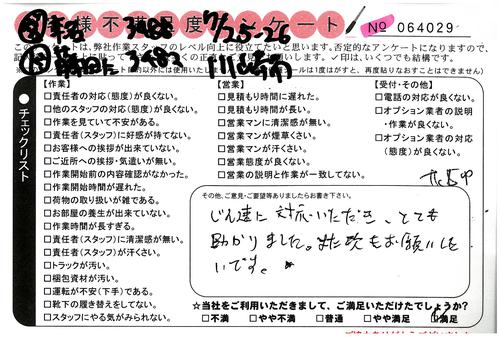 お客様不満足度アンケート
No 064029
このアンケートは、弊社作業スタッフのレベル向上に役立てたいと思います。否定的なアンケートになりますので、
【作業】
□責任者の対応(態度)が良くない。
□他のスタッフの対応(態度)が良くない。
□作業を見ていて不安がある。
□責任者(スタッフ)に好感が持てない。
□お客様への挨拶が出来ていない。
□ご近所への挨拶・気遣いが無い。
□作業開始前の内容確認がなかった。
□作業開始時間が遅れた。
□荷物の取り扱いが雑である。
□お部屋の養生が出来ていない。
□作業時間が長すぎる。
□責任者(スタッフ)に清潔感が無い。
□責任者(スタッフ)が汗くさい。
□トラックが汚い。
□梱包資材が汚い。
□運転が不安(下手)である。
□靴下の履き替えをしてない。
□スタッフにやる気がみられない。
【営業】
□見積もり時間に遅れた。
□見積もり時間が長い。
□営業マンに清潔感が無い。
□営業マンが煙草くさい。
□営業マンが汗くさい。
□営業態度が良くない。
□営業の説明と作業が一致してない。
【受付・その他】
□電話の対応が良くない。
□オプション業者の説明
・作業が良くない。
□オプション業者の対応
(態度)が良くない。
チェックリスト
その他、ご意見・ご要望等ありましたらお書き下さい。
じん速に対応いただき、とても
助かりました。また次もお願いした
いです。
☆当社をご利用いただきまして、ご満足いただけたでしょうか?
□不満 □やや不満 □普通 □やや満足 □満足